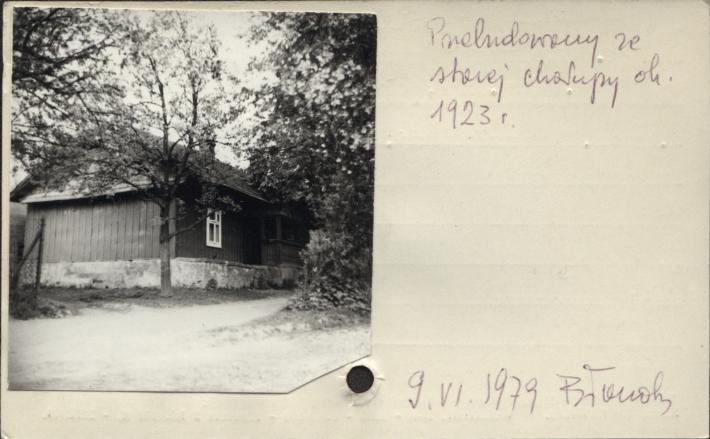 Przebudowany ze
starej chałupy ok.
1923 r.
9. VI. 1979